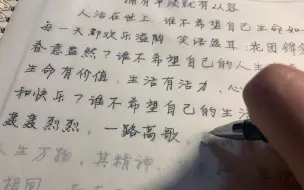 人活在世上,谁不希望自己生命如
每一天都欢乐盈脚,笑语盈耳,花团锦
春意盎然?谁不希望自己的人生
生命有价值,生活有活力,心
和快乐?谁不希望自己的生活
轰轰烈烈,一路高歌
人生万物,其精神